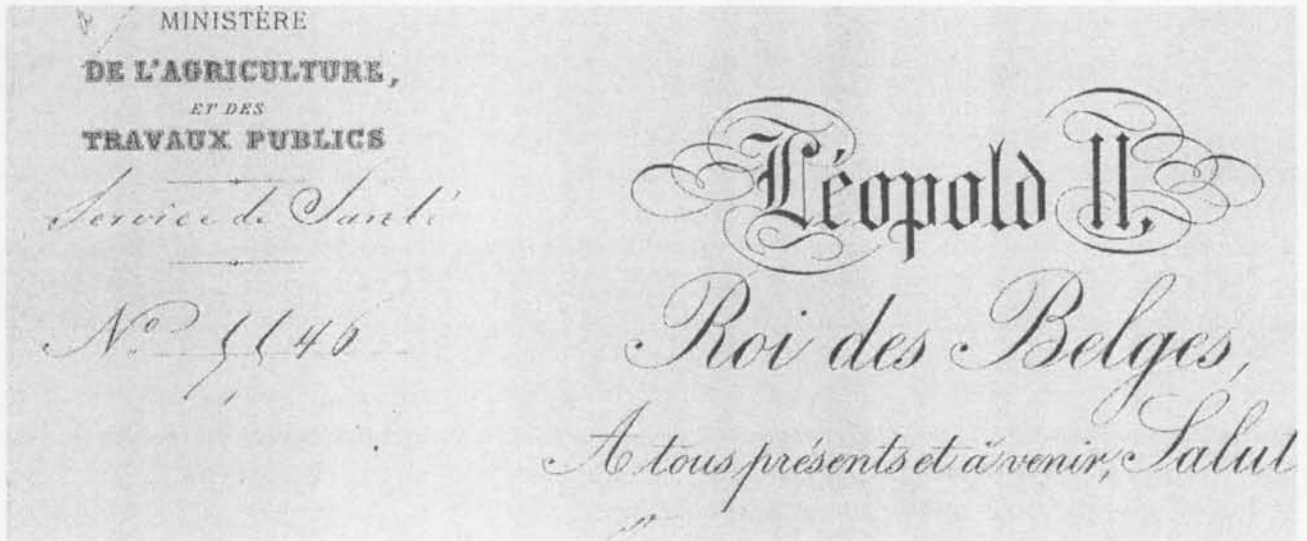 MINISTÈRE
DE L'AGRICULTURE,
ET DES
TRAVAUX PUBLICS
Service de Santé
Nº
Léopold II,
Roi des Belges,
A tous présents et à venir, Salut